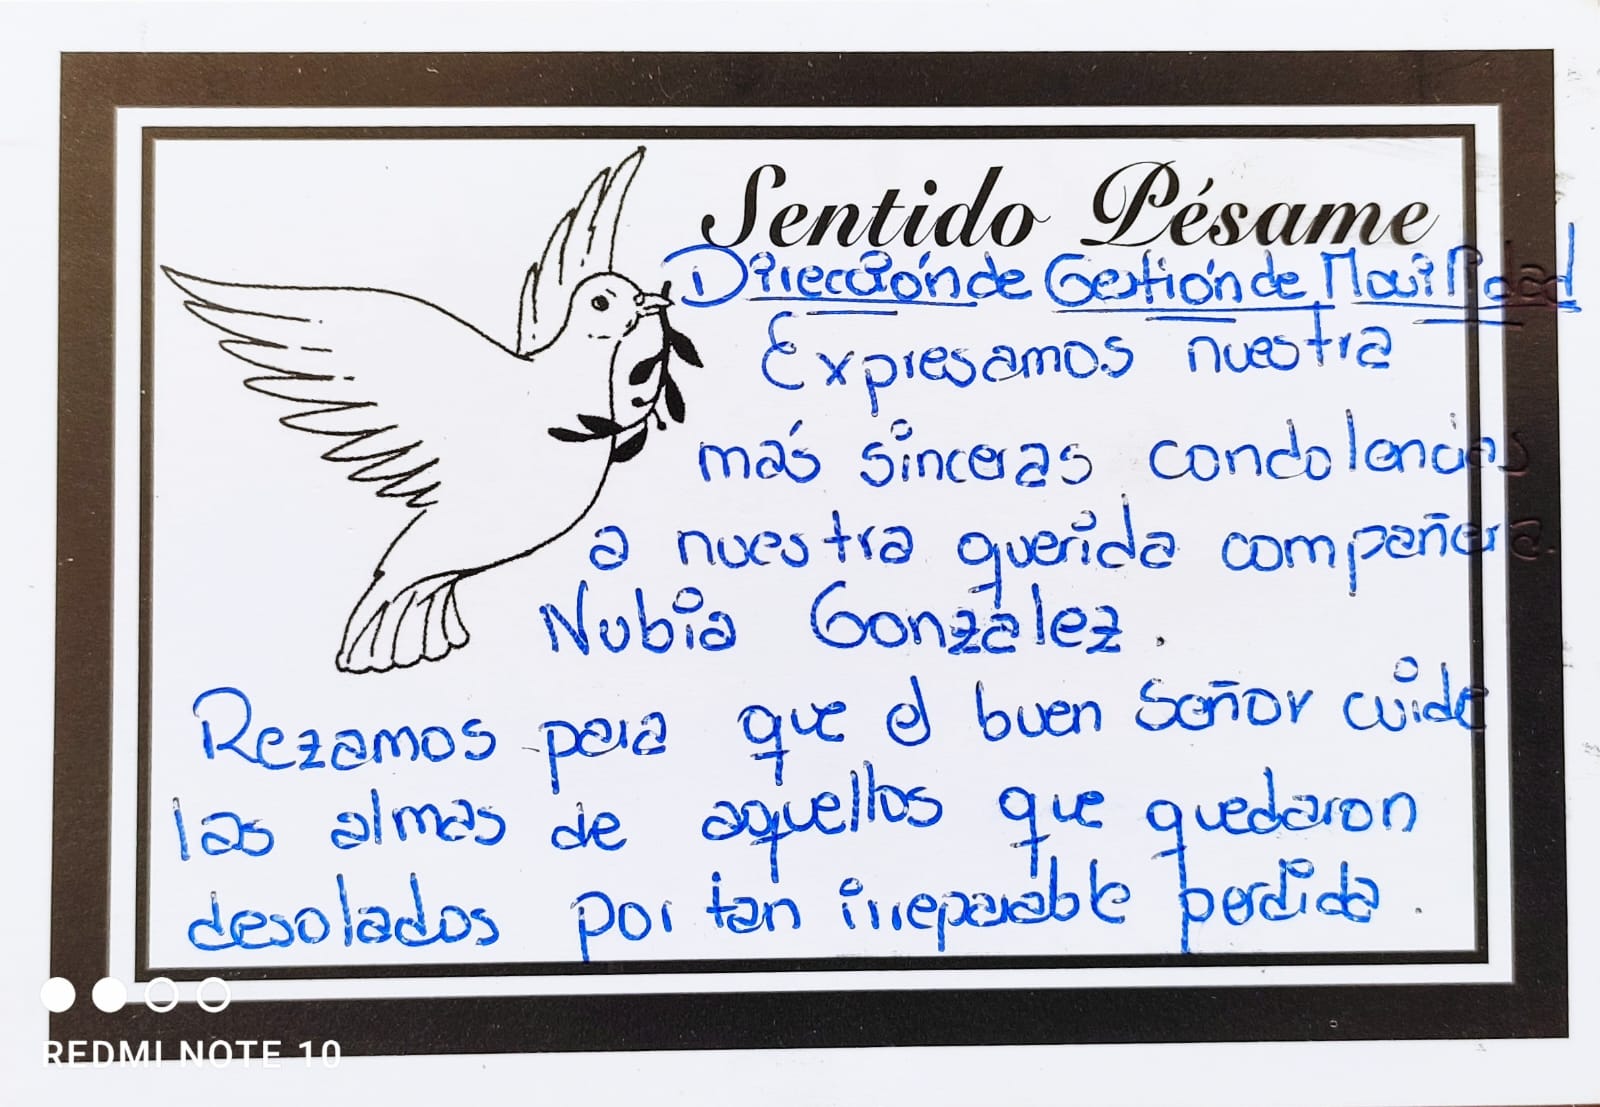 Sentido Pésame
Dirección de Gestión de Movilidad
Expresamos nuestra
más sinceras condolencias
a nuestra querida compañera.
Nubia Gonzalez.
Rezamos para que el buen Señor cuide
las almas de aquellos que quedaron
desolados por tan irreparable perdida.
REDMI NOTE 10